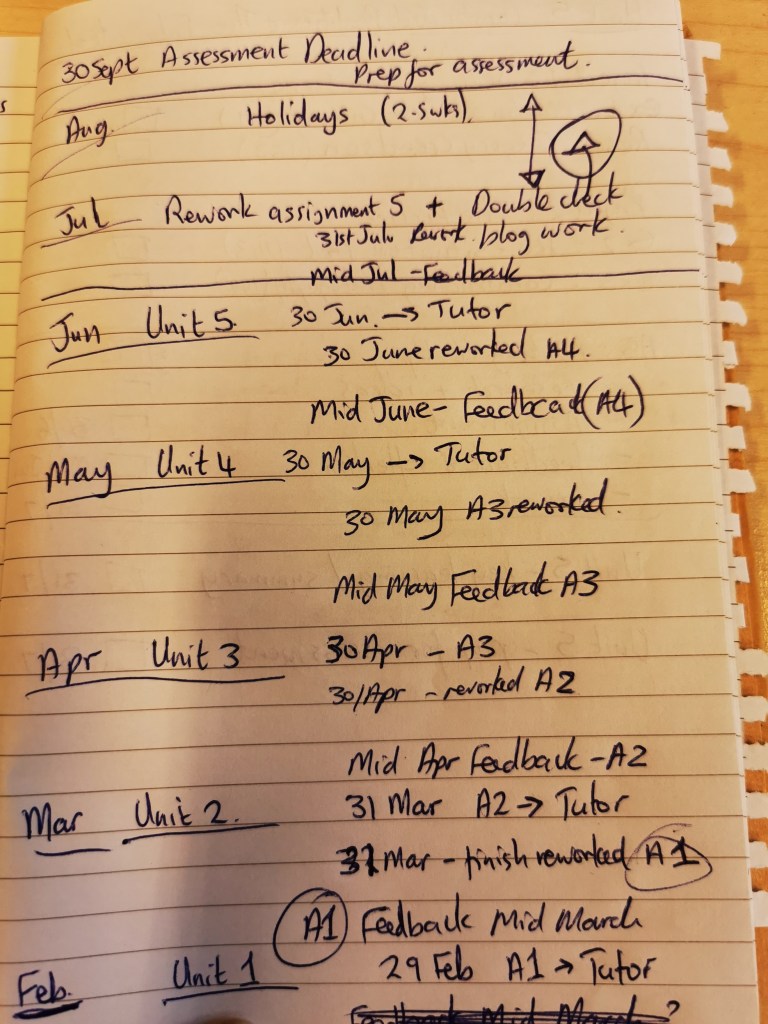 30 Sept Assessment Deadline.
Prep for assessment.
Aug. Holidays (2-3wks).
Jul Rework assignment 5 + Double check
31st July Rework. blog work.
Mid Jul - Feedback
Jun Unit 5. 30 Jun. → Tutor
30 June reworked A4.
Mid June - Feedback (A4)
May Unit 4 30 May → Tutor
30 May A3 reworked.
Mid May Feedback A3
Apr Unit 3 30 Apr - A3
30/Apr - reworked A2
Mid Apr Feedback - A2
Mar Unit 2. 31 Mar A2 → Tutor
31 Mar - finish reworked A1
A1 Feedback Mid March
Feb. Unit 1 29 Feb A1 → Tutor
Feedback Mid March?